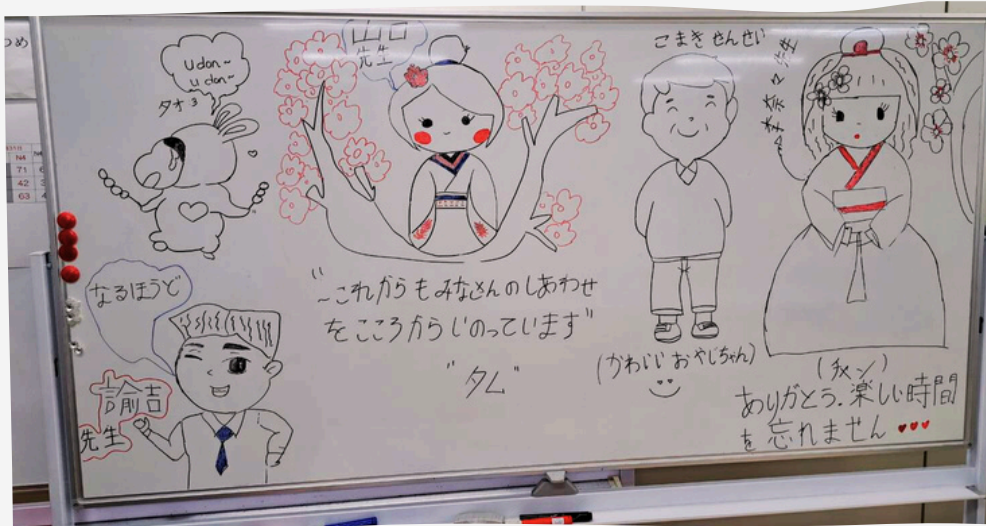 つめ
N4
71
42
63
udon~
udon~
タオ
山口
先生
こまき せんせい
奈々先生
なるほうど
諭吉
先生
"~これからもみなさんのしあわせ
をこころからいのっています"
"タム"
(かわいい おやじちゃん)
(チャン)
ありがとう.楽しい時間
を忘れません